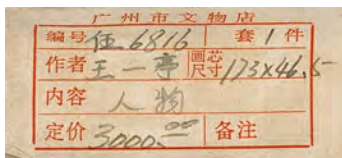 广州市文物店
编号 伍6816 套1件
作者 王一亭 画芯尺寸 173×46.5
内容 人物
定价 3000.00 备注